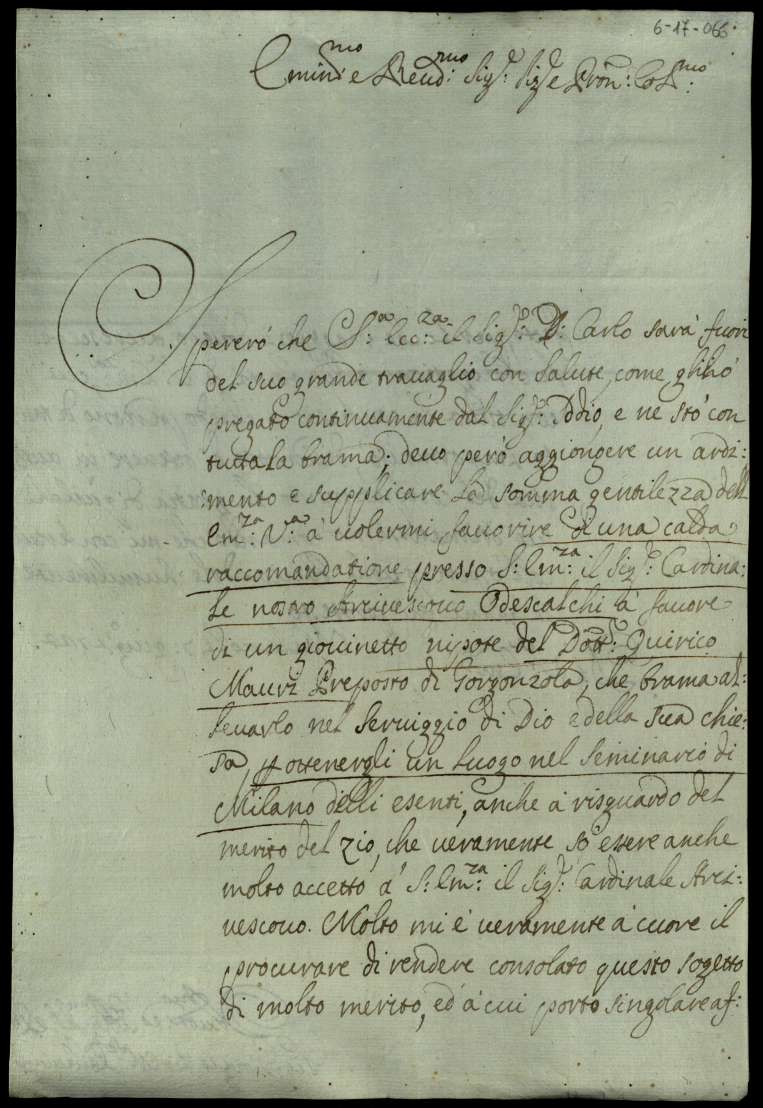 6-17-066
Emin.mo e Reud.mo Sig.r Sig.e Pron: Col.mo
Spererò che S.a Ecc.za il Sig.r D: Carlo sarà fuori
del suo grande trauaglio con salute, come glihò
pregato continuamente dal Sig.r Iddio, e ne stò con
tutta la brama; deuo però aggiongere un ardi:
mento e supplicare la somma gentilezza dell
Em.za V.a à uolermi fauorire di una calda
raccomandatione presso S: Em.za il Sig.r Cardina:
le nostro Arciuescouo Odescalchi à fauore
di un giouinetto nipote del Dott.r Quirico
Mauri Preposto di Gorgonzola, che brama al:
leuarlo nel seruiggio di Dio e della sua chie:
sa, p ottenergli un luogo nel seminario di
Milano delli esenti, anche à risguardo del
merito del zio, che ueramente sò essere anche
molto accetto à S: Em.za il Sig.r Cardinale Arci:
uescouo. Molto mi è ueramente à cuore il
procurare di rendere consolato questo sogetto
di molto merito, ed à cui porto singolare af: